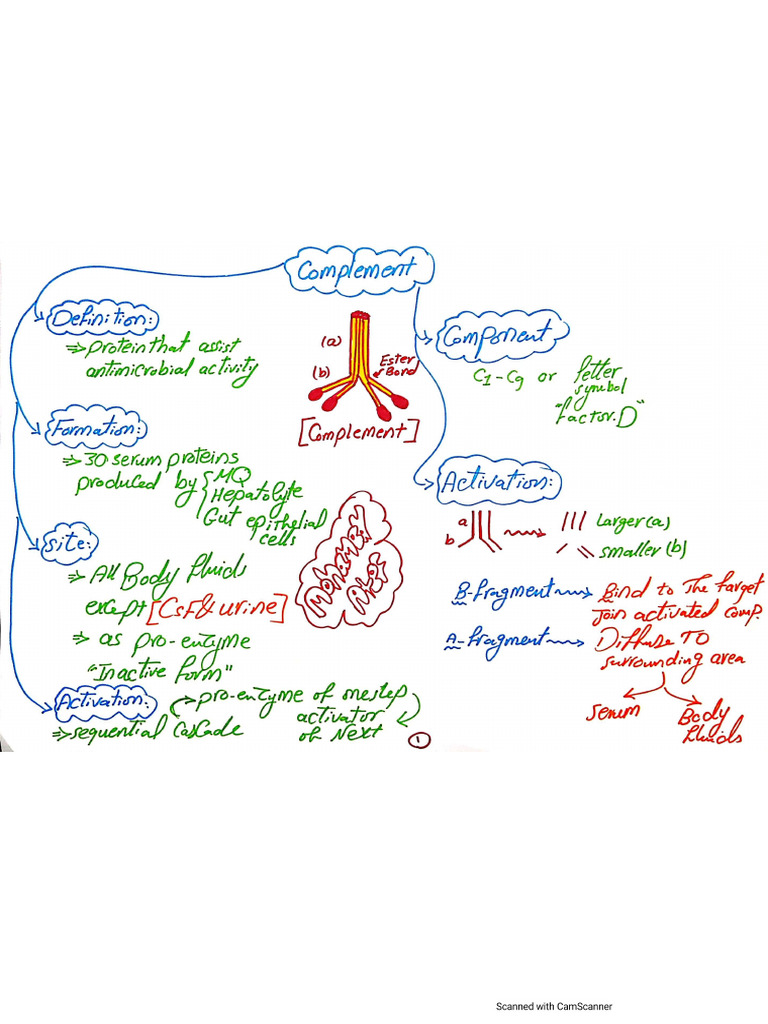 Complement
Definition:
⇒ protein that assist
antimicrobial activity
(a)
(b)
Ester
Bond
[Complement]
Formation:
⇒ 30 serum proteins
produced by { MQ
Hepatolyte
Gut epithelial
cells
Site:
⇒ All Body fluids
except [CSF & urine]
⇒ as pro-enzyme
"Inactive form"
Activation:
⇒ sequential Cascade
pro-enzyme of one step
activator
of Next
Mohamed
1
Component
C1-C9 or letter
symbol
"factor.D"
Activation:
a
b
Larger (a)
smaller (b)
B-fragment → Bind to The target
Join activated comp.
A-fragment → Diffuse To
surrounding area
Serum
Body
fluids
Scanned with CamScanner